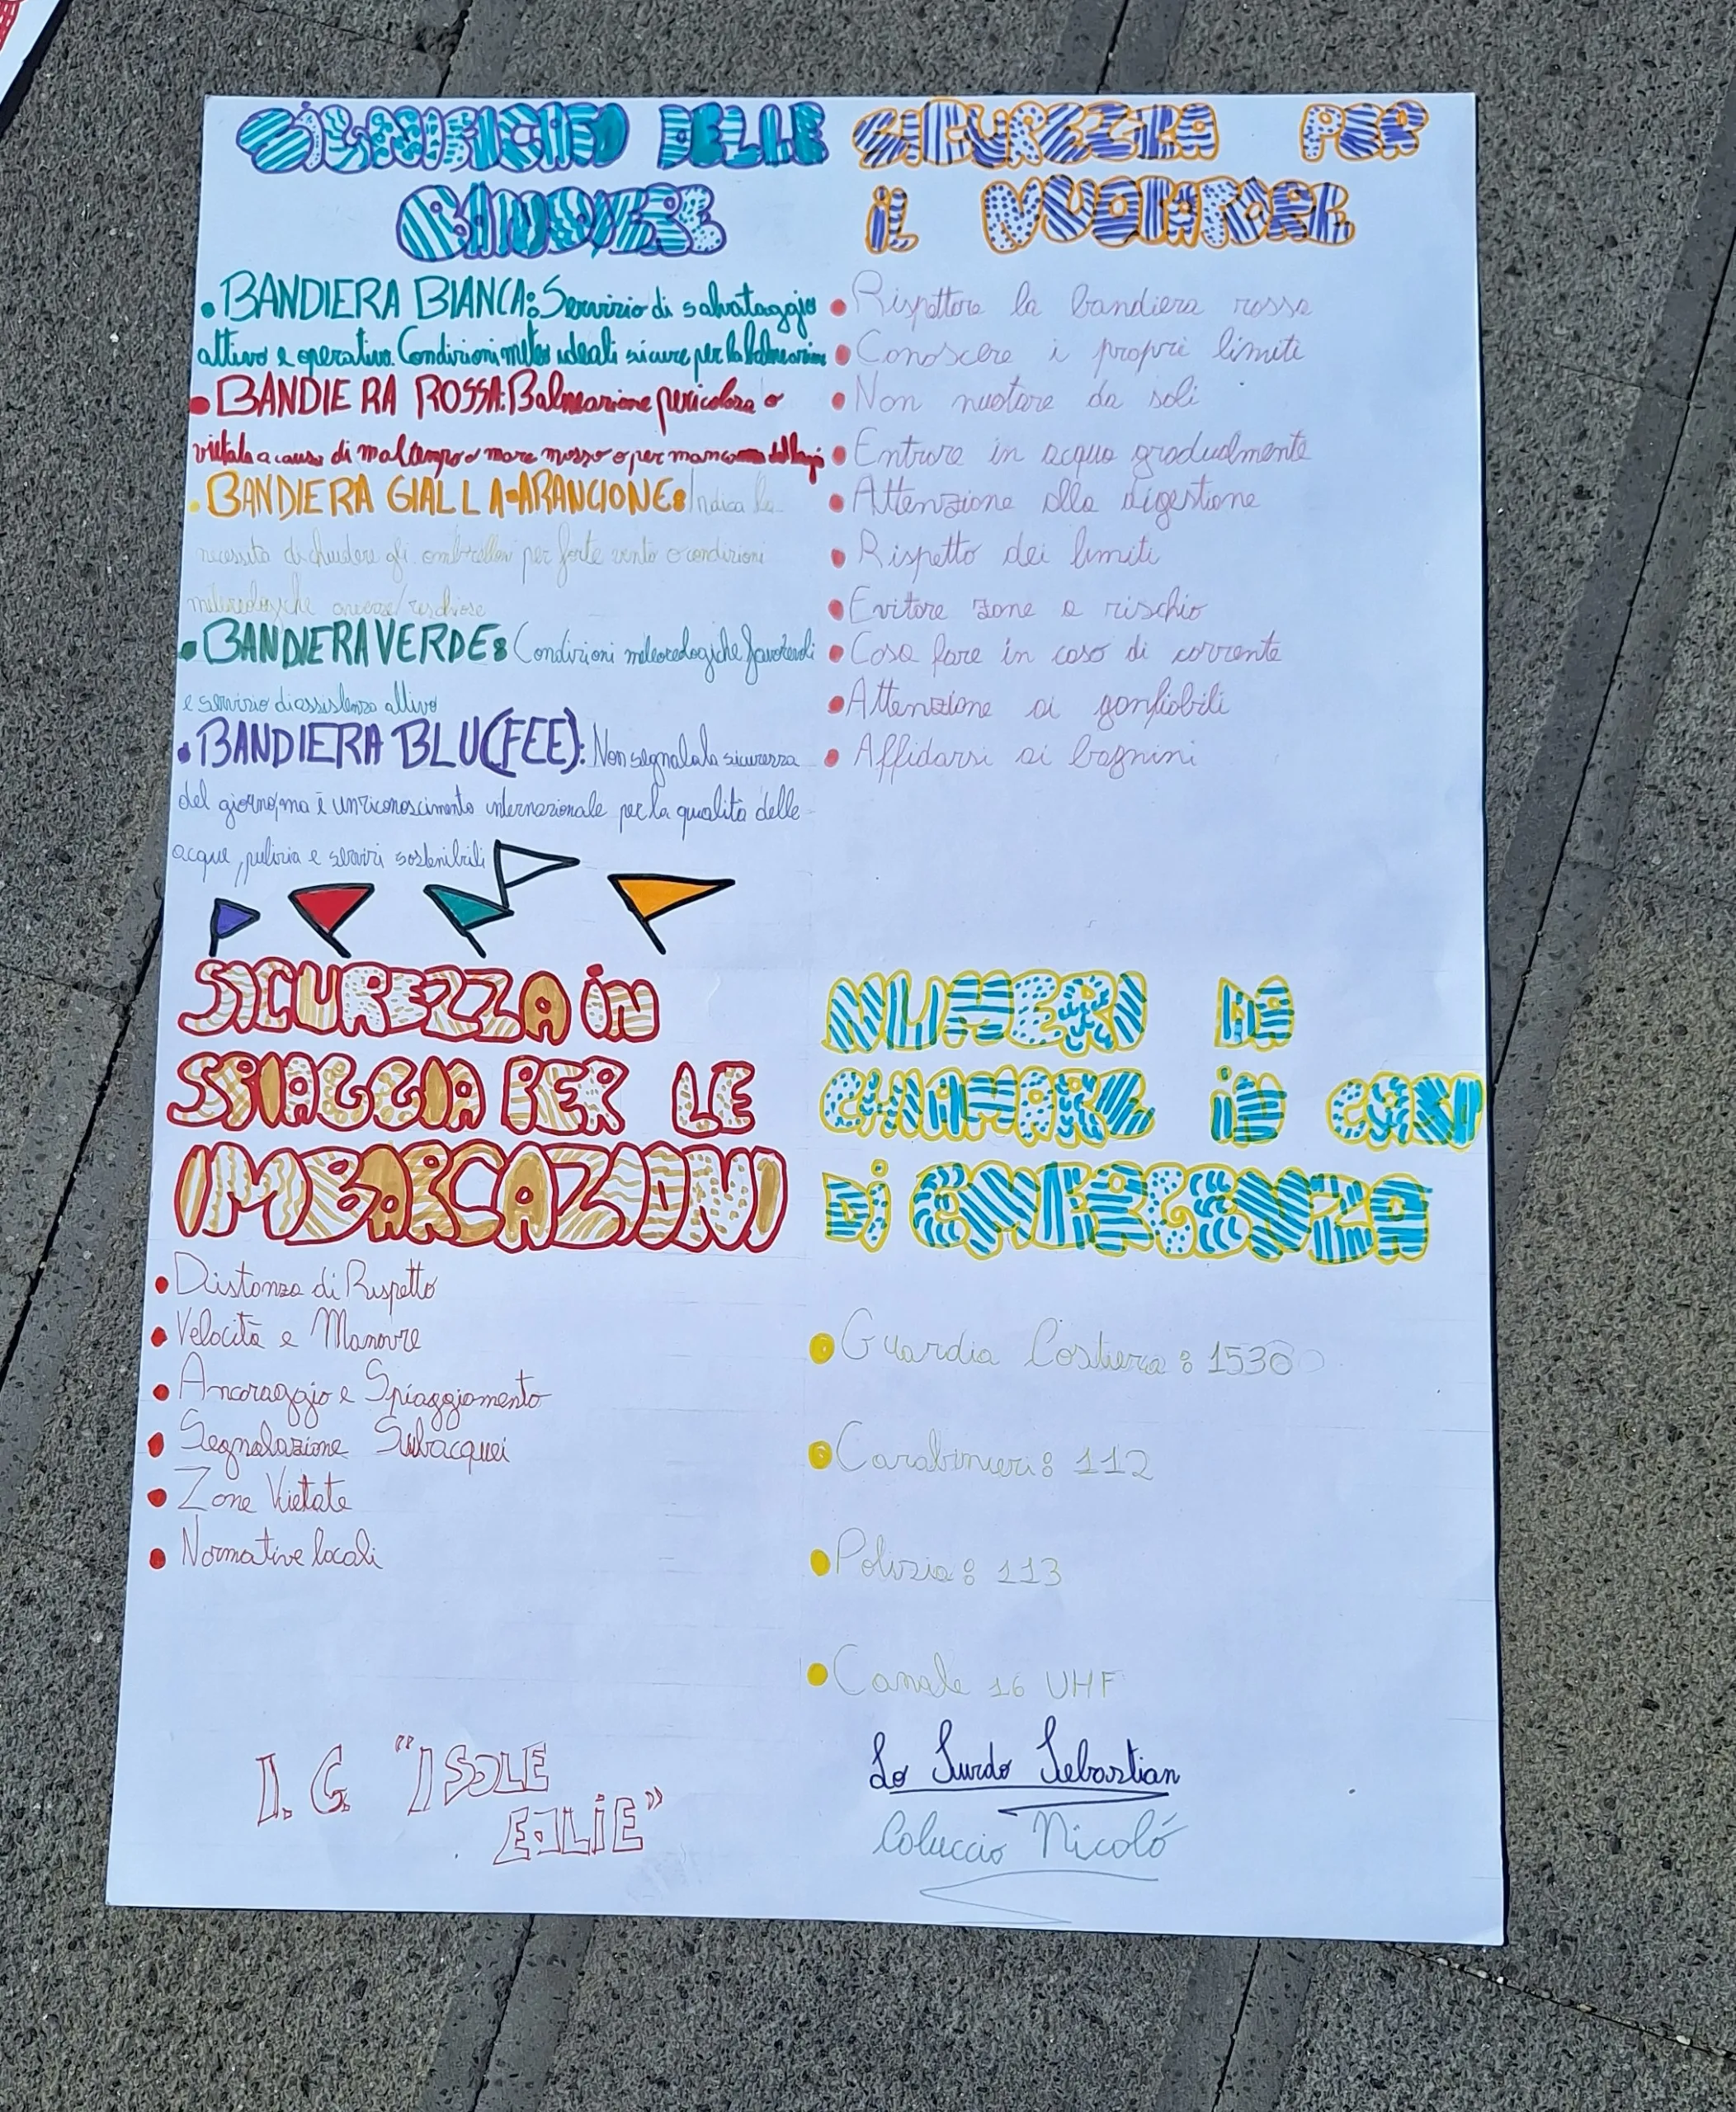 SIGNIFICATO DELLE
BANDIERE
• BANDIERA BIANCA: Servizio di salvataggio
attivo e operativo. Condizioni meteo ideali sicure per la balneazione
• BANDIERA ROSSA: Balneazione pericolosa o
vietata a causa di maltempo o mare mosso o per
• BANDIERA GIALLA-ARANCIONE: Indica la
necessità di chiudere gli ombrelloni per forte vento o condizioni
metereologiche avverse/rischiose
• BANDIERA VERDE: Condizioni meteorologiche favorevoli
e servizio di assistenza attivo
• BANDIERA BLU (FEE): Non segnala la sicurezza
del giorno, ma è un riconoscimento internazionale per la qualità delle
acque, pulizia e servizi sostenibili
SICUREZZA PER
IL NUOTATORE
• Rispettare la bandiera rossa
• Conoscere i propri limiti
• Non nuotare da soli
• Entrare in acqua gradualmente
• Attenzione alla digestione
• Rispetto dei limiti
• Evitare zone a rischio
• Cosa fare in caso di corrente
• Attenzione ai gonfiabili
• Affidarsi ai bagnini
SICUREZZA IN
SPIAGGIA PER LE
IMBARCAZIONI
• Distanza di Rispetto
• Velocità e Manovre
• Ancoraggio e Spiaggiamento
• Segnalazione Subacquei
• Zone Vietate
• Normative locali
NUMERI DA
CHIAMARE IN CASI
DI EMERGENZA
• Guardia Costiera: 1530
• Carabinieri: 112
• Polizia: 113
• Canale 16 UHF
I. C. "ISOLE
EOLIE"
Lo Surdo Sebastian
Coluccio Nicoló